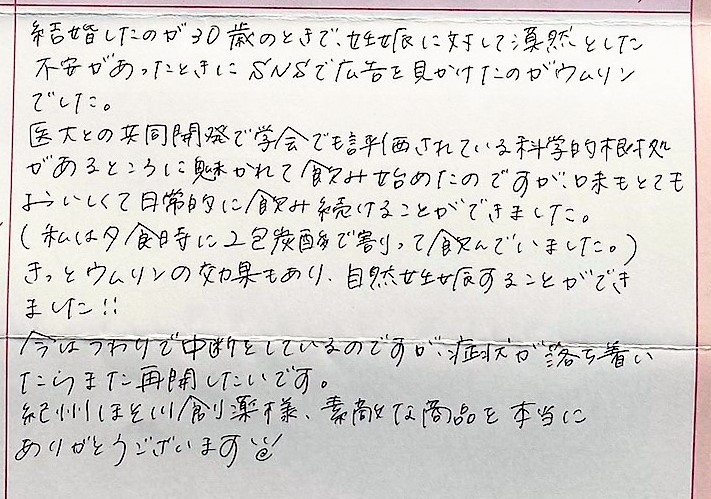 結婚したのが30歳のときで、妊娠に対して漠然とした
不安があったときにSNSで広告を見かけたのがウムリン
でした。
医大との共同開発で学会でも評価されている科学的根拠
があるところに魅かれて飲み始めたのですが、味もとても
おいしくて日常的に飲み続けることができました。
(私は夕食時に2包炭酸で割って飲んでいました。)
きっとウムリンの効果もあり、自然妊娠することができ
ました!!
今はつわりで中断をしているのですが、症状が落ち着い
たらまた再開したいです。
紀州ほそ川創薬様、素敵な商品を本当に
ありがとうございます